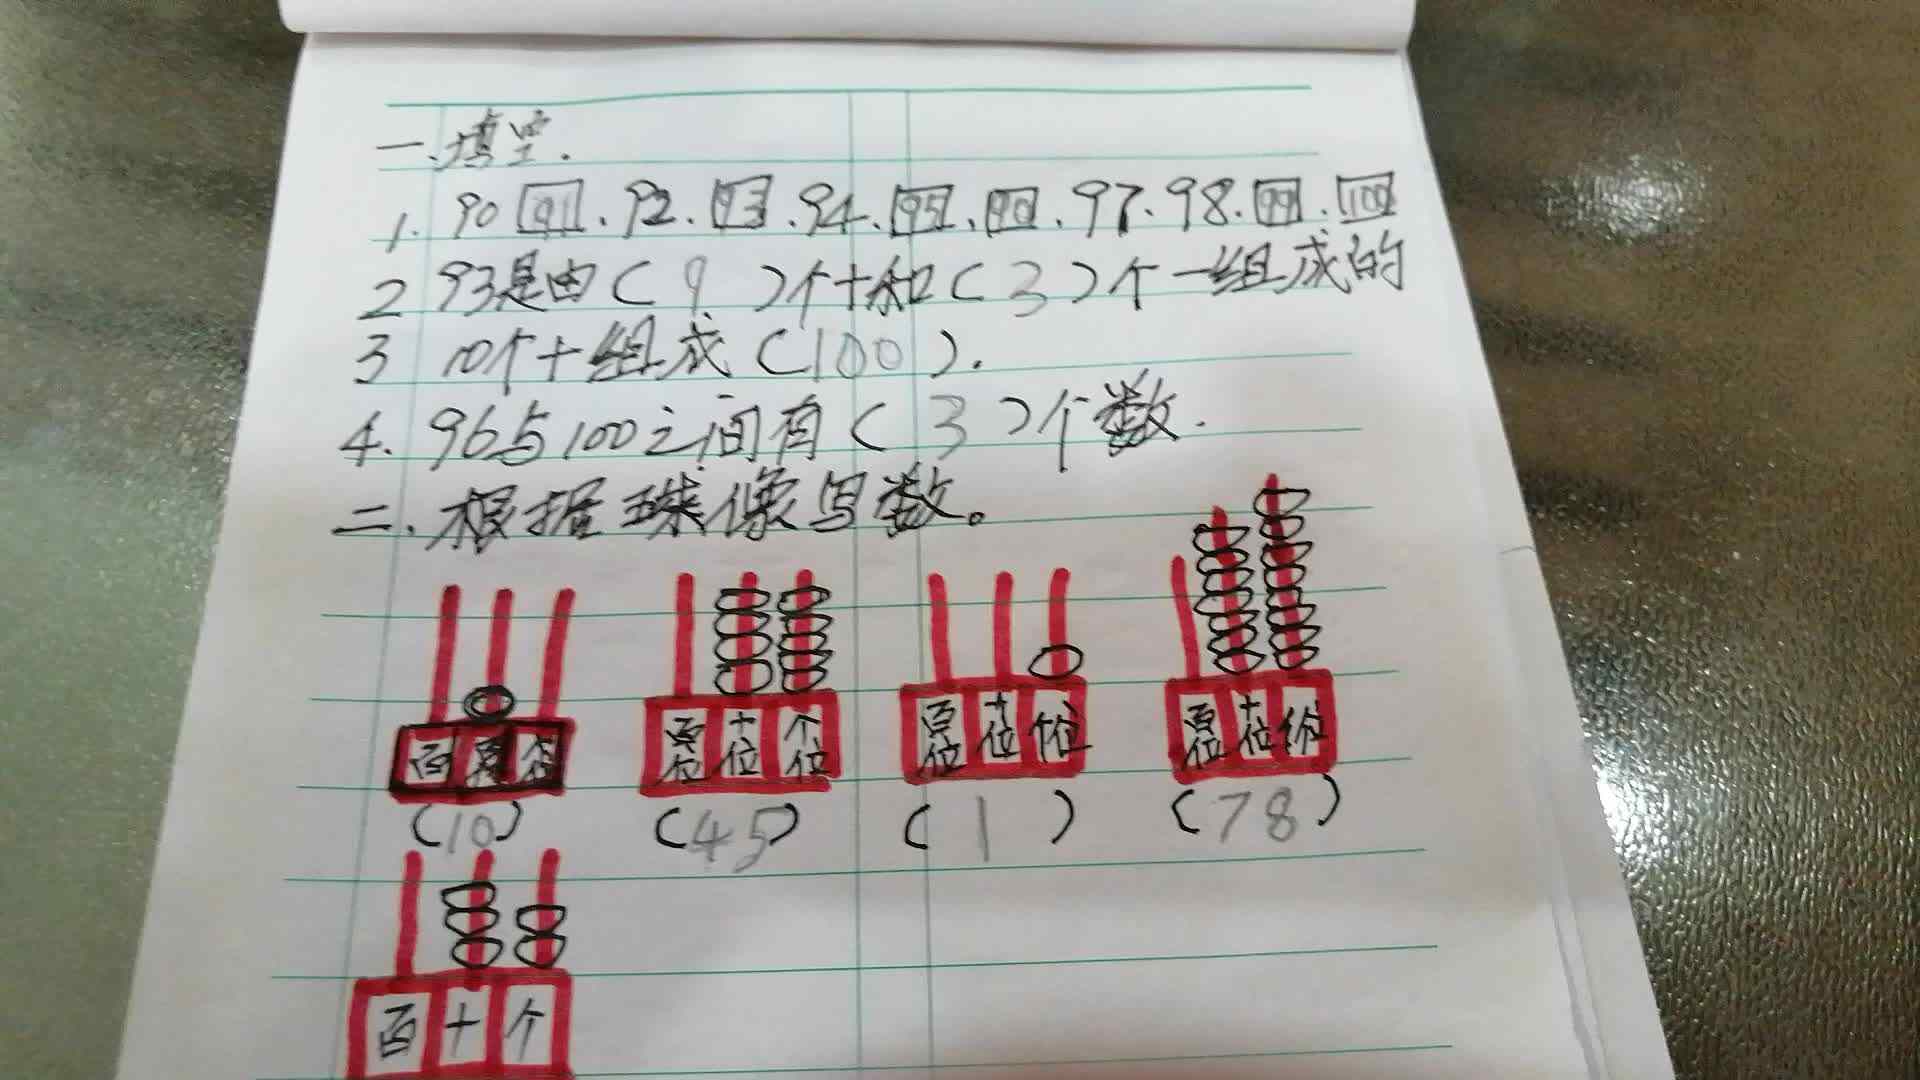 一.填空.
1. 90 91、92、93、94、95、90、97、98、99、100
2 93是由(9)个十和(3)个一组成的
3 10个十组成(100).
4. 96与100之间有(3)个数.
二.根据珠像写数。
百 个位 百位 十位 个位 百位 十位 个位 百位 十位 个位
(10) (45) (1) (78)
百 十 个